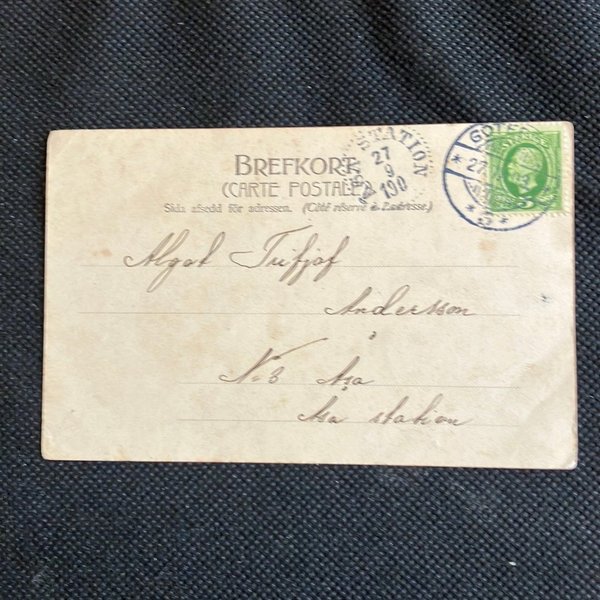 BREFKORT
(CARTE POSTALE)
Sida afsedd för adressen. (Côté réservé à l'adresse.)
STATION
27
9
190
GÖTE
27
5
Algot Fritjof
Andersson
N:3 Åsa
Åsa station